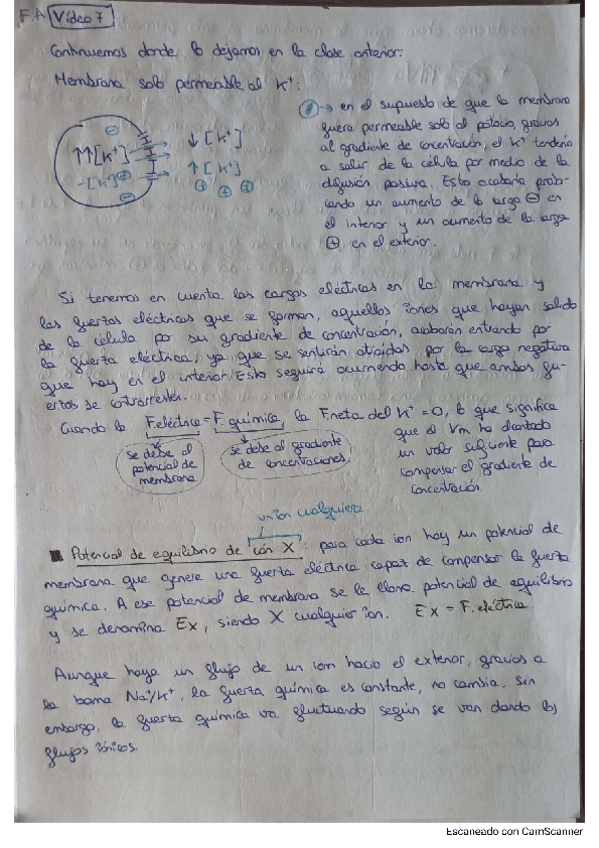 F.A Vídeo 7
Continuemos donde lo dejamos en la clase anterior:
Membrana solo permeable al K⁺:
→ en el supuesto de que la membrana
fuera permeable solo al potasio, gracias
al gradiente de concentración, el K⁺ tendería
a salir de la célula por medio de la
difusión pasiva. Esto acabaría provo-
cando un aumento de la carga ⊖ en
el interior y un aumento de la carga
⊕ en el exterior.
⊖
↑↑[K⁺]
-[K⁺]⊕
↓[K⁺]
↑[K⁺]
⊕ ⊕ ⊕
⊖
Si tenemos en cuenta las cargas eléctricas en la membrana y
las fuerzas eléctricas que se forman, aquellos iones que hayan salido
de la célula por su gradiente de concentración, acabarán entrando por
la fuerza eléctrica, ya que se sentirán atraídos por la carga negativa
que hay en el interior. Esto seguirá ocurriendo hasta que ambas fu-
erzas se contrarresten.
Cuando la F.eléctrica = F. química, la F.neta del K⁺ = 0, lo que significa
que el Vm ha alcanzado
un valor suficiente para
compensar el gradiente de
concentración.
se debe al
potencial de
membrana
se debe al gradiente
de concentraciones.
un ion cualquiera
■ Potencial de equilibrio de ión X: para cada ion hay un potencial de
membrana que genere una fuerza eléctrica capaz de compensar la fuerza
química. A ese potencial de membrana se le llama potencial de equilibrio
y se denomina Ex, siendo X cualquier ion. Ex = F. eléctrica
Aunque haya un flujo de un ion hacia el exterior, gracias a
la bomba Na⁺/K⁺, la fuerza química es constante, no cambia. Sin
embargo, la fuerza química va fluctuando según se van dando los
flujos iónicos.
Escaneado con CamScanner